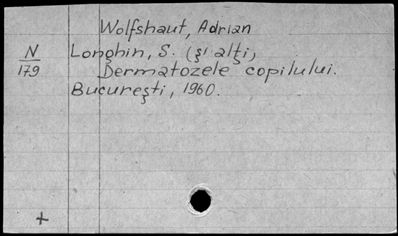 Wolfshaut, Adrian
N Longhin, S. (şi alţi)
179 Dermatozele copilului.
Bucureşti, 1960.
+